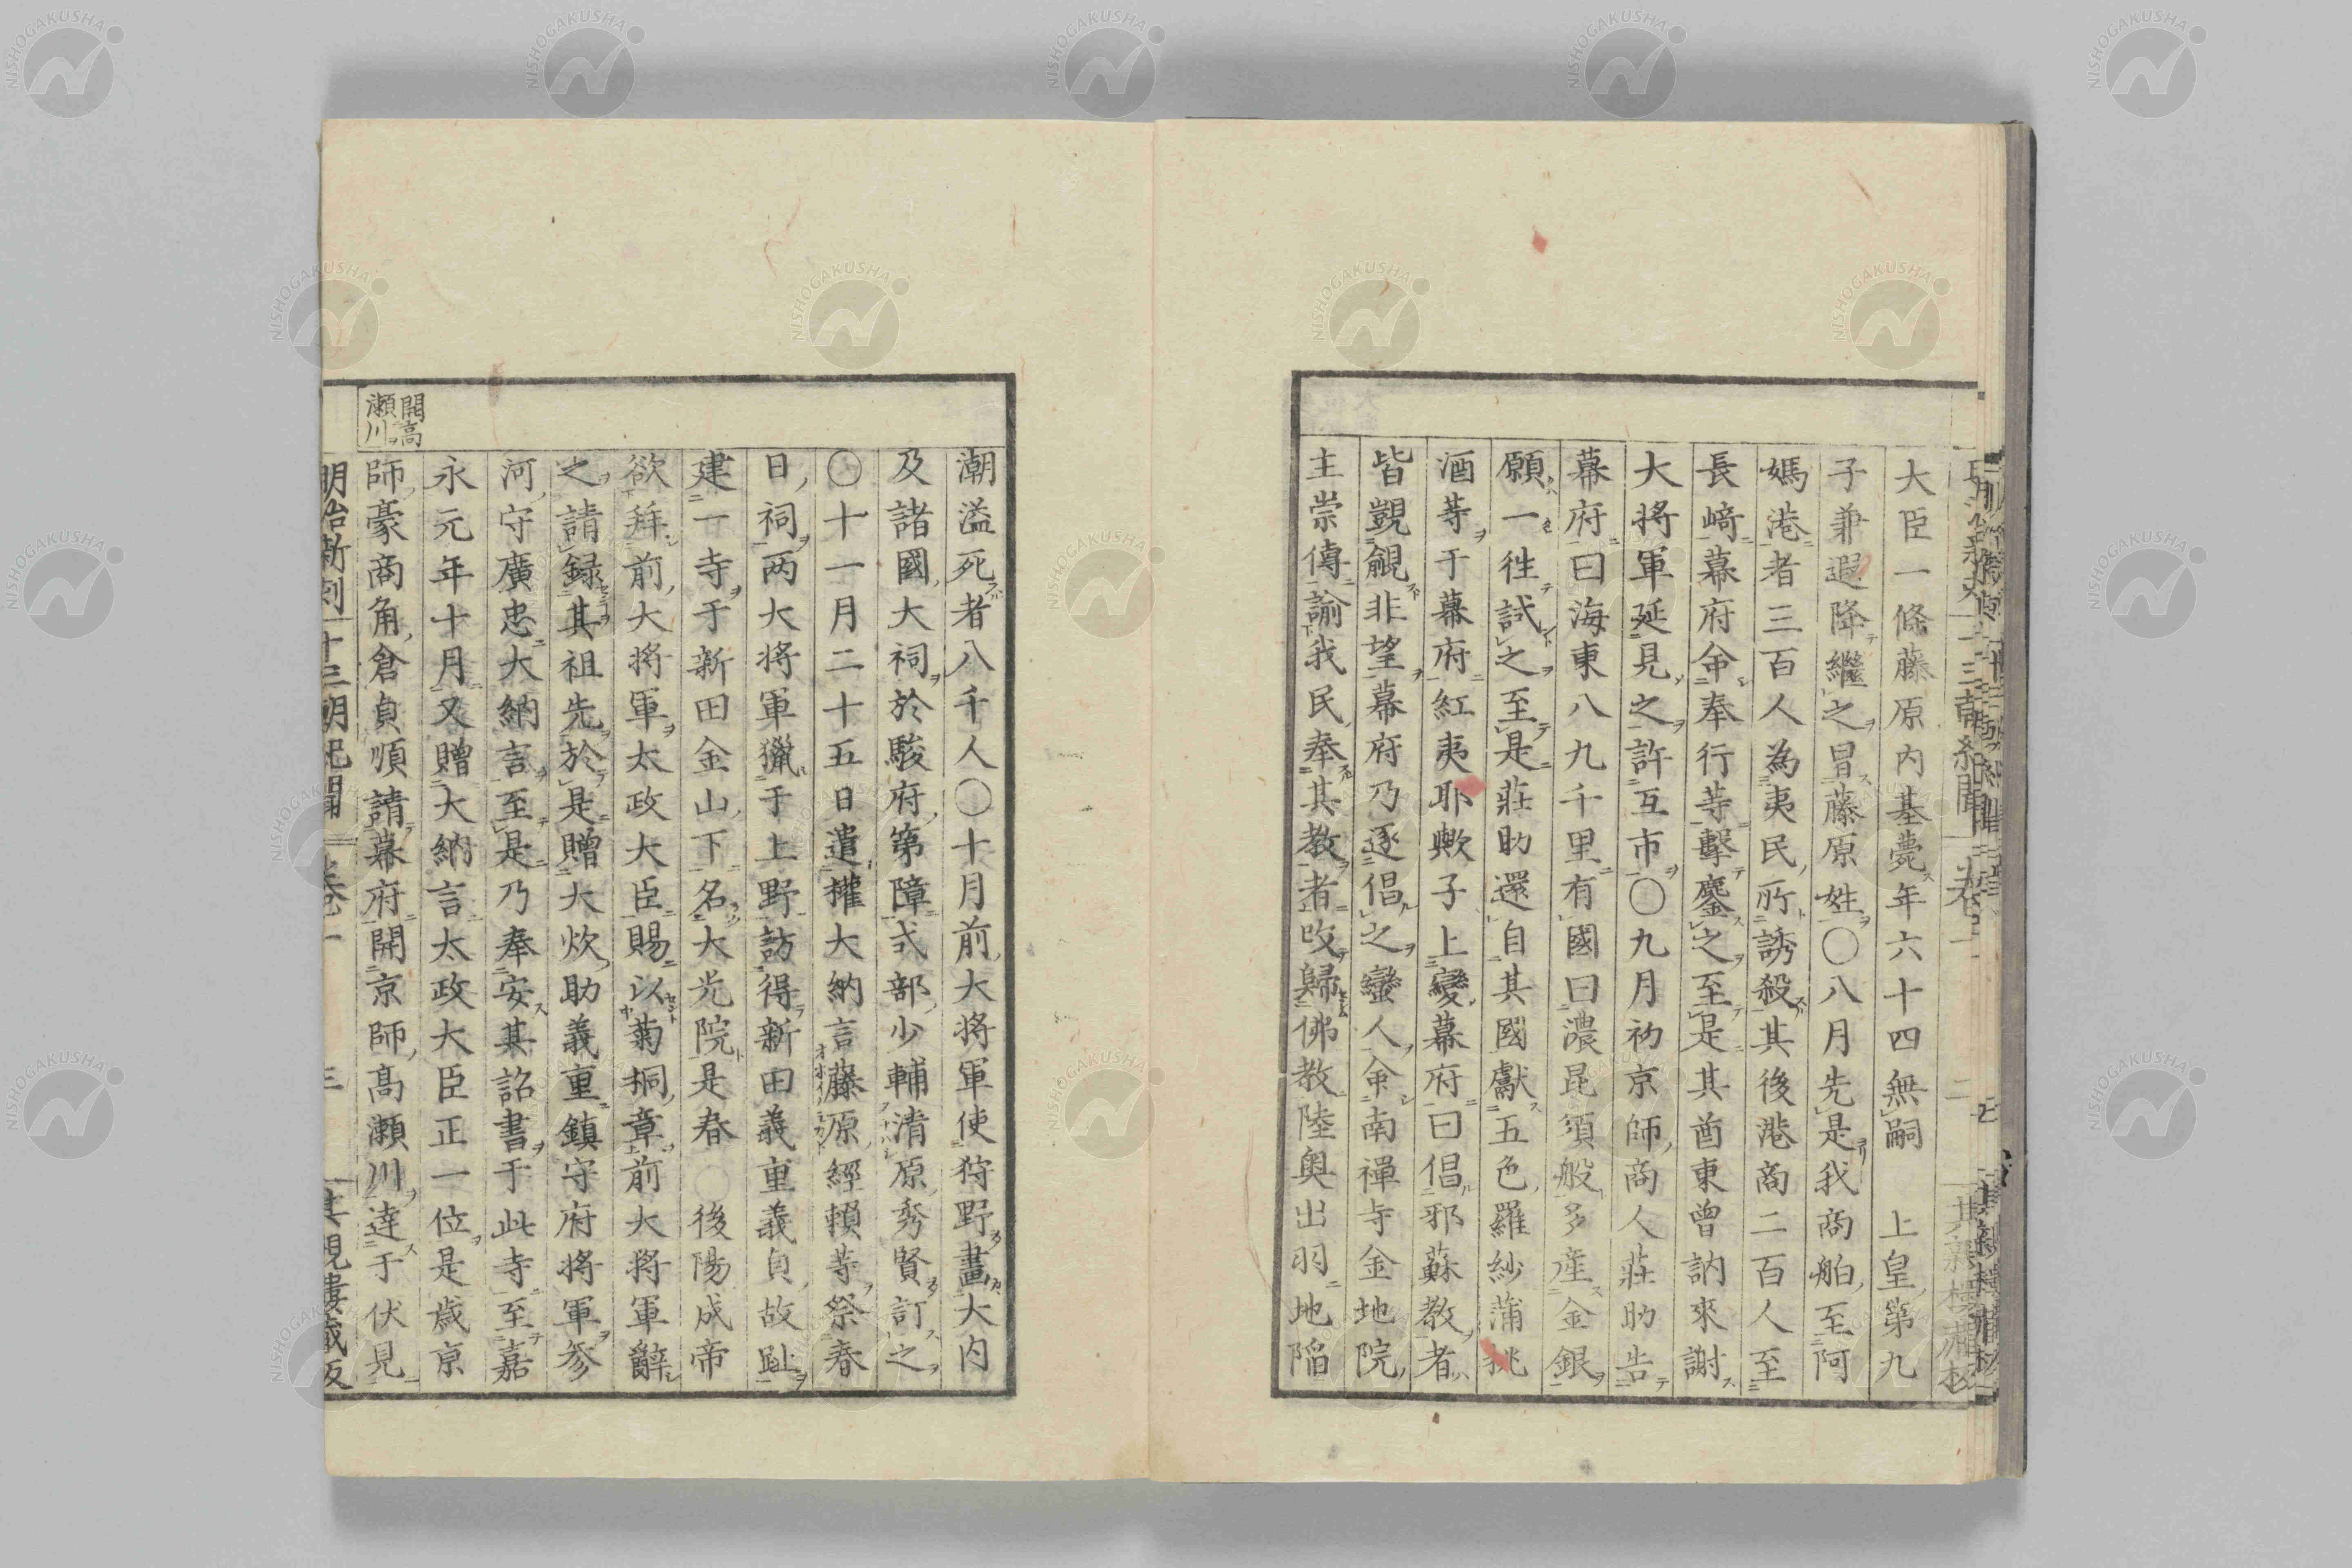 大臣一條藤原内基薨年六十四無嗣　上皇第九
子兼遐降繼之冒藤原姓〇八月先是我商舶至阿
媽港者三百人為夷民所誘殺其後港商二百人至
長﨑幕府命奉行等擊鏖之至是其酋東曾訥來謝
大將軍延見之許互市〇九月初京師商人莊助告
幕府曰海東八九千里有國曰濃昆須般多産金銀
願一徃試之至是莊助還自其國獻五色羅紗蒲桃
酒等于幕府紅夷耶歟子上變幕府曰倡邪蘇教者
皆覬覦非望幕府乃逐倡之蠻人命南禪寺金地院
主崇傳諭我民奉其教者攺歸佛教陸奥出羽地陷
潮溢死者八千人〇十月前大将軍使狩野畫大内
及諸國大祠於駿府第障式部少輔清原秀賢訂之
〇十一月二十五日遣權大納言藤原經頼等祭春
日祠两大将軍獵于上野訪得新田義重義貞故趾
建一寺于新田金山下名大光院是春〇後陽成帝
欲拜前大将軍太政大臣賜以菊桐章前大将軍辭
之請録其祖先於是贈大炊助義重鎮守府将軍参
河守廣忠大納言至是乃奉安其詔書于此寺至嘉
永元年十月又贈大納言太政大臣正一位是歳京
師豪商角倉貞順請幕府開京師髙瀬川達于伏見
開高
瀬川
明治新刻 十三朝紀聞 卷一 三
NISHOGAKUSHA